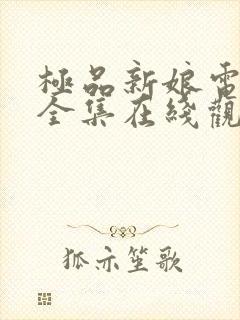 極品新娘電
全集在綫觀
狐亦笙歌